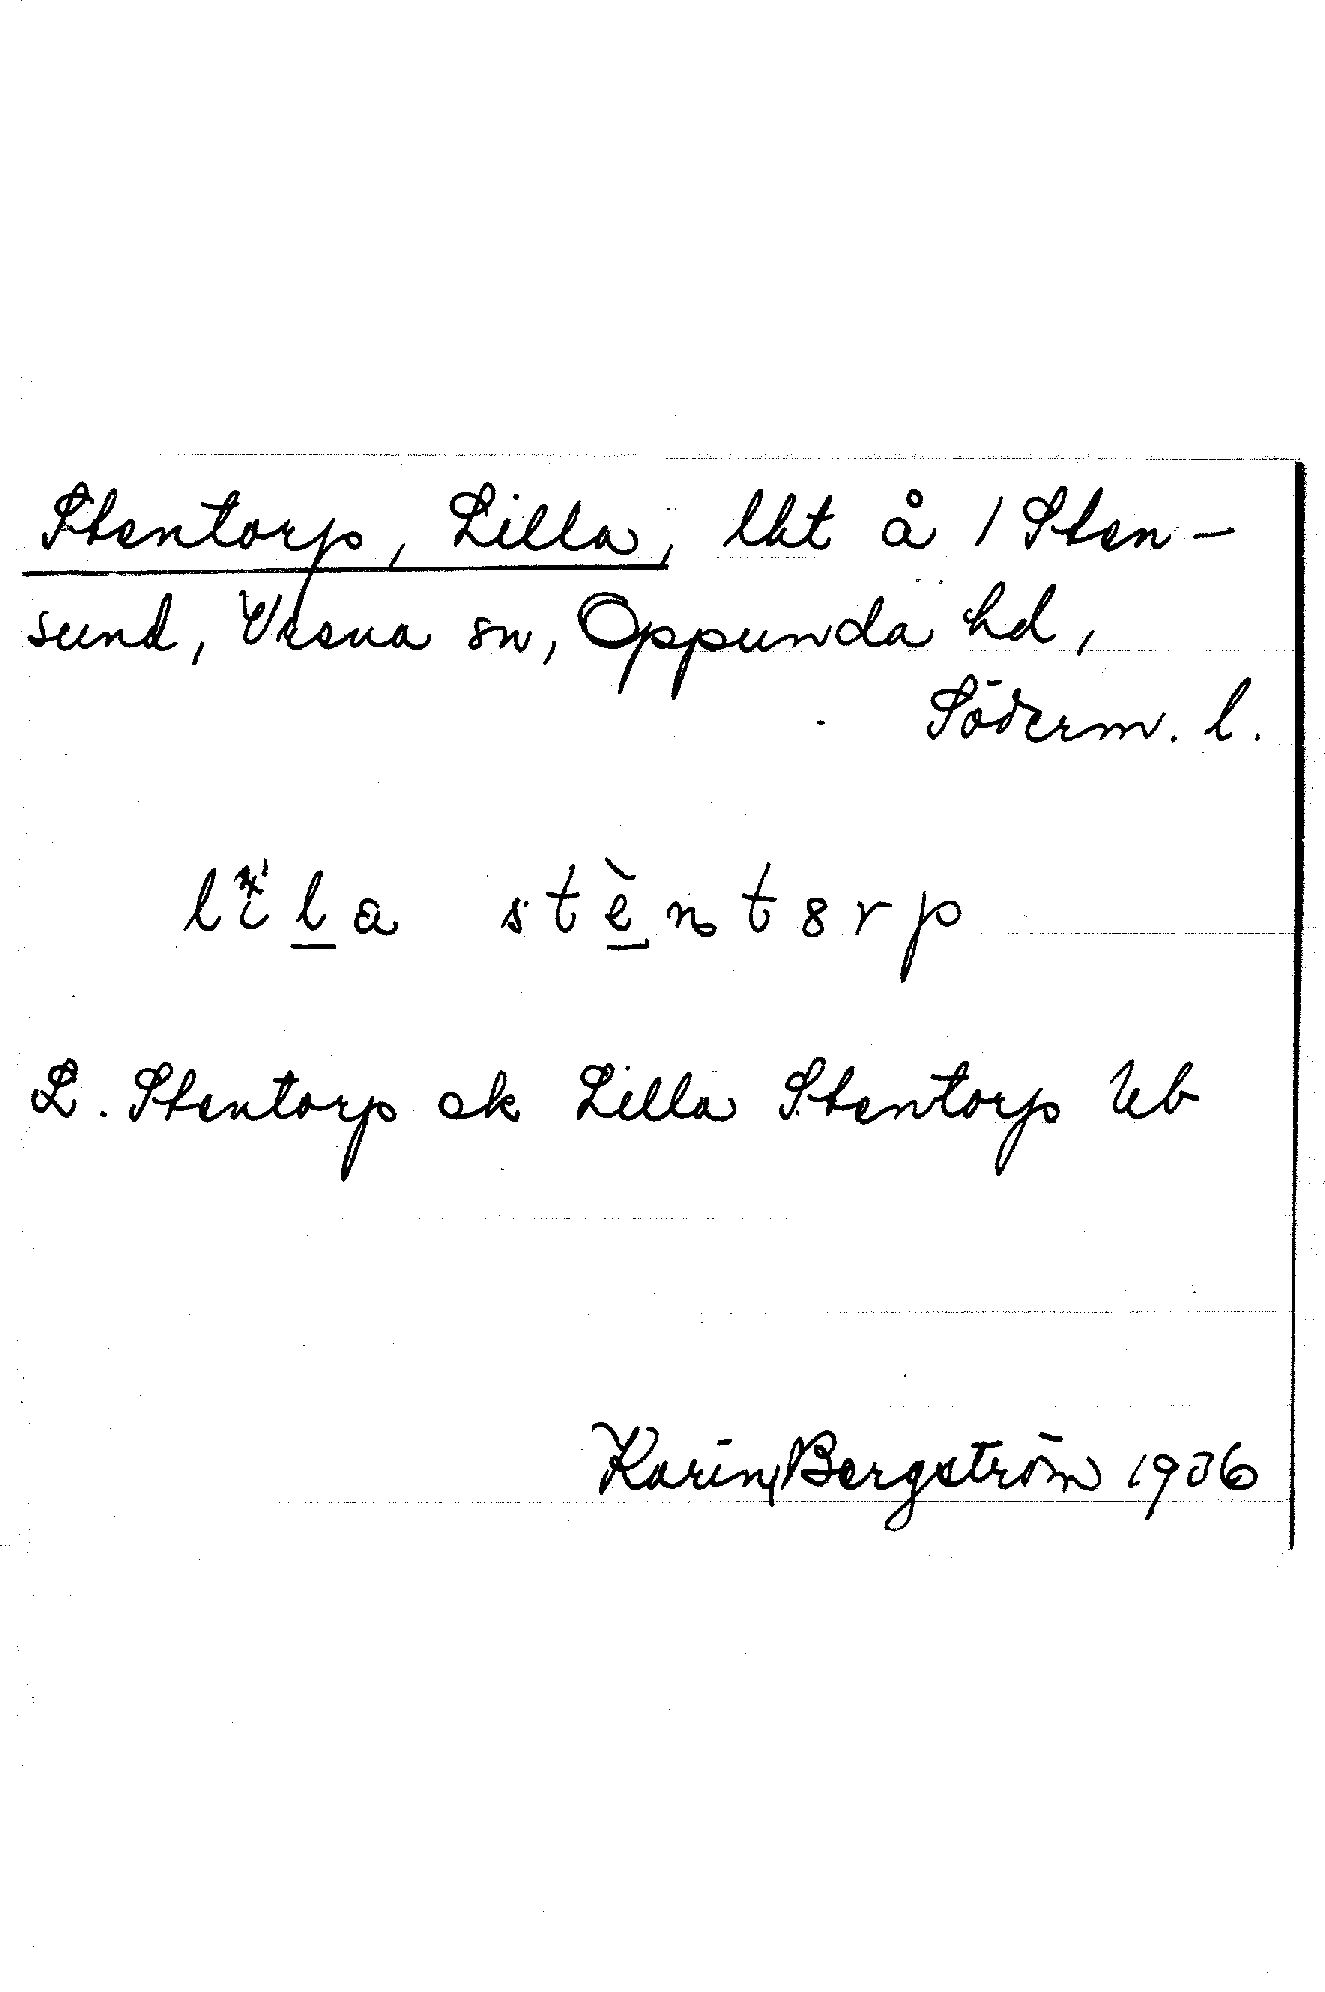 Stentorp, Lilla, lht å 1 Sten-
sund, Vrena sn, Oppunda hd,
Söderm. l.
lila stèntorp
L. Stentorp ek Lilla Stentorp Ub
Karin Bergström 1936